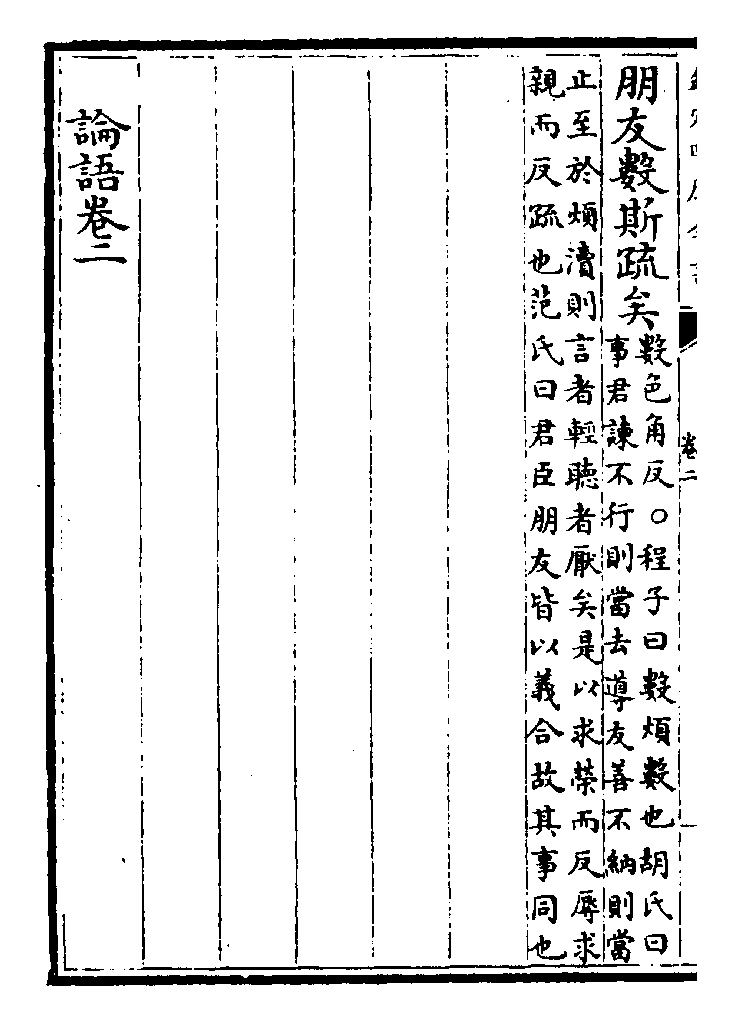 卷二
朋友數斯疏矣
數色角反○程子曰數煩數也胡氏曰
事君諫不行則當去導友善不納則當
止至於煩瀆則言者輕聽者厭矣是以求榮而反辱求
親而反疏也范氏曰君臣朋友皆以義合故其事同也
論語卷二